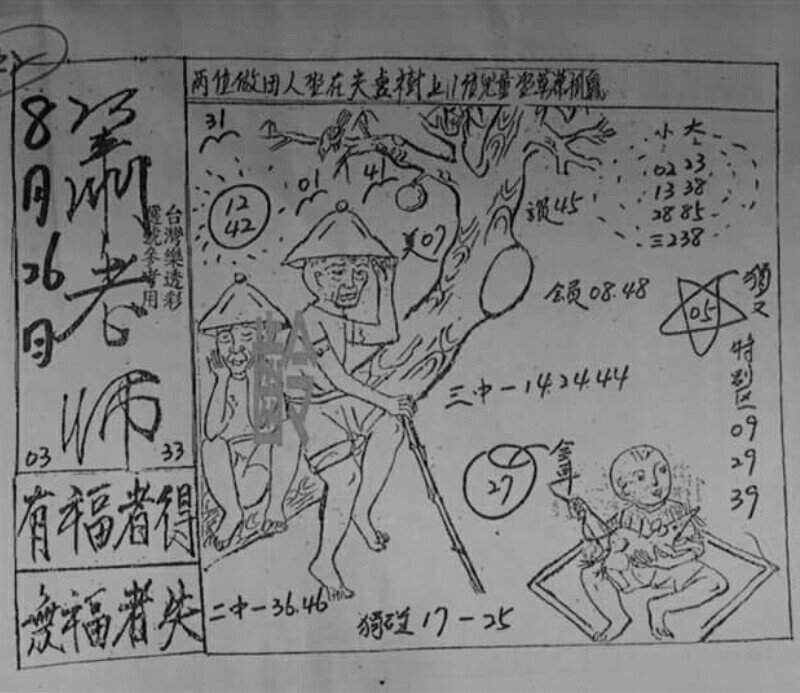 8月26日
蕭老師
台灣樂透彩
選號參考用
03
33
有福者得
無福者失
兩位做田人坐在夫壹樹上1
31
12
42
01
41
美07
讚45
小 大
02 23
13 38
28 85
三238
08.48
05
特別区
09
29
39
三中一14.24.44
27
二中一36.46
獨碰 17-25